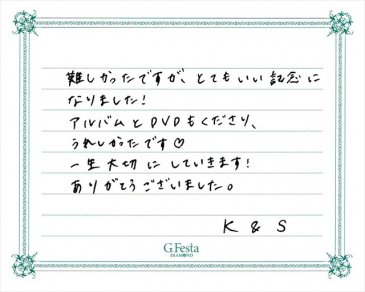 難しかったですが、とてもいい記念に
なりました!
アルバムとDVDもくださり、
うれしかったです♡
一生大切にしていきます!
ありがとうございました。
K & S
G.Festa
DIAMOND